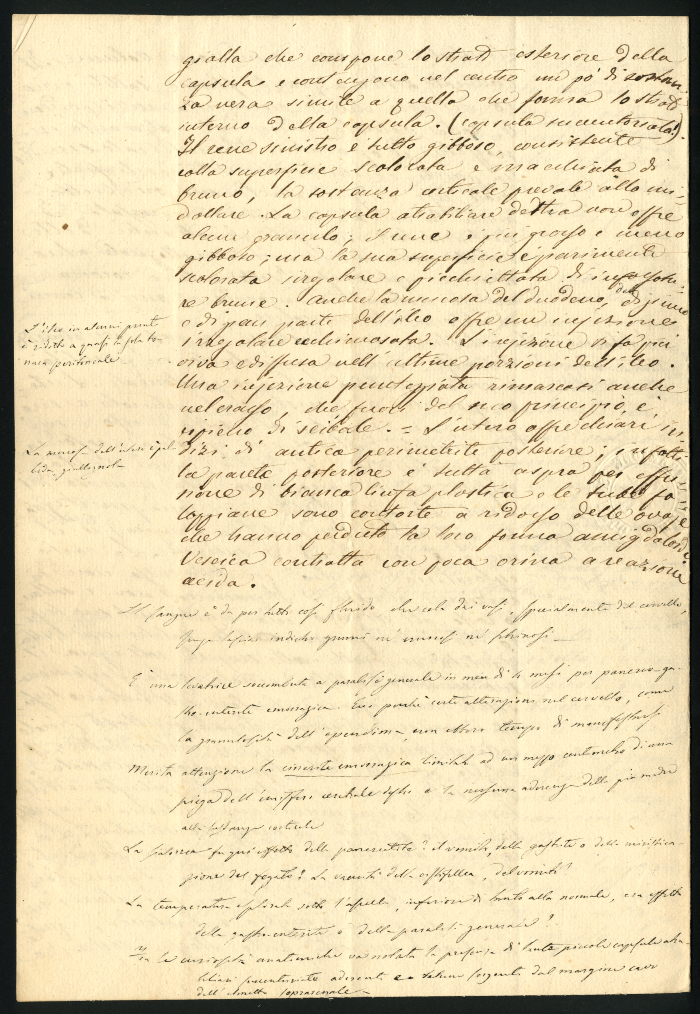 gialla che compone lo strato esteriore della
capsula e contengono nel centro un pò di sostan
za nera simile a quella che forma lo strato
interno della capsula. (capsula succenturiata!)
Il rene sinistro è tutto gibboso, consistente
colla superficie scolorata e macchiata di
bruno, la sostanza corticale prevale alla mi=
dollare. La capsula atrabiliare destra non offre
alcun granulo; il rene è più grosso e meno
gibboso; ma la sua superficie è parimenti
scolorata irregolare e picchiettata di
re brune. Anche la mucosa del duodeno, del digiuno
e di gran parte dell'ileo offre un injezione
irregolare ecchimosata. L'injezione si fa più
viva e diffusa nell'ultime porzioni dell'ileo.
Una injezione punteggiata rimarcasi anche
nel crasso, che, fuori del suo principio, è
ripieno di scibale. = L'utero offre chiari in
dizi di antica perimetrite posteriore; infatti
la parete posteriore è tutta aspra per effu
sione di bianca linfa plastica e le tube fa
loppiane sono contorte a ridosso delle ovaje
che hanno perduto la loro forma amigdaloide
Vescica contratta con poca orina a reazione
acida.
L'ileo in alcuni punti
è ridotto a quasi la sola to-
naca peritoneale.
La mucosa dell'utero è pal
lida, giallognola
Il sangue è da per tutto così fluido che cola dai vasi, specialmente del cervello,
senza lasciare indietro grumi nè cruosi nè fibrinosi.
È una lavatrice soccombuta a paralisi generale in men di 4 mesi per pancreo-ga-
stro-enterite emorragica. Ecco perchè certe alterazioni nel cervello, come
la granulosità dell'ependima, non ebbero tempo di manifestarsi
Merita attenzione la cinerite emorragica limitata ad un mezzo centimetro di una
piega dell'emisfero cerebrale destro e la nessuna aderenza della pia madre
alla sostanza corticale
La fu qui effetto della pancreatite? il vomito, della gastrite o della
zione del fegato? La vacuità della cistifellea, del vomito?
La temperatura esplorata sotto l'ascella, inferiore di tanto alla normale, era effetto
della gastro-enterite o della paralisi generale?
Fra le curiosità anatomiche va notata la presenza di tante piccole capsule atra-
biliari succenturiate aderenti e talune sorgenti dal margine cavo
dell' soprarenale